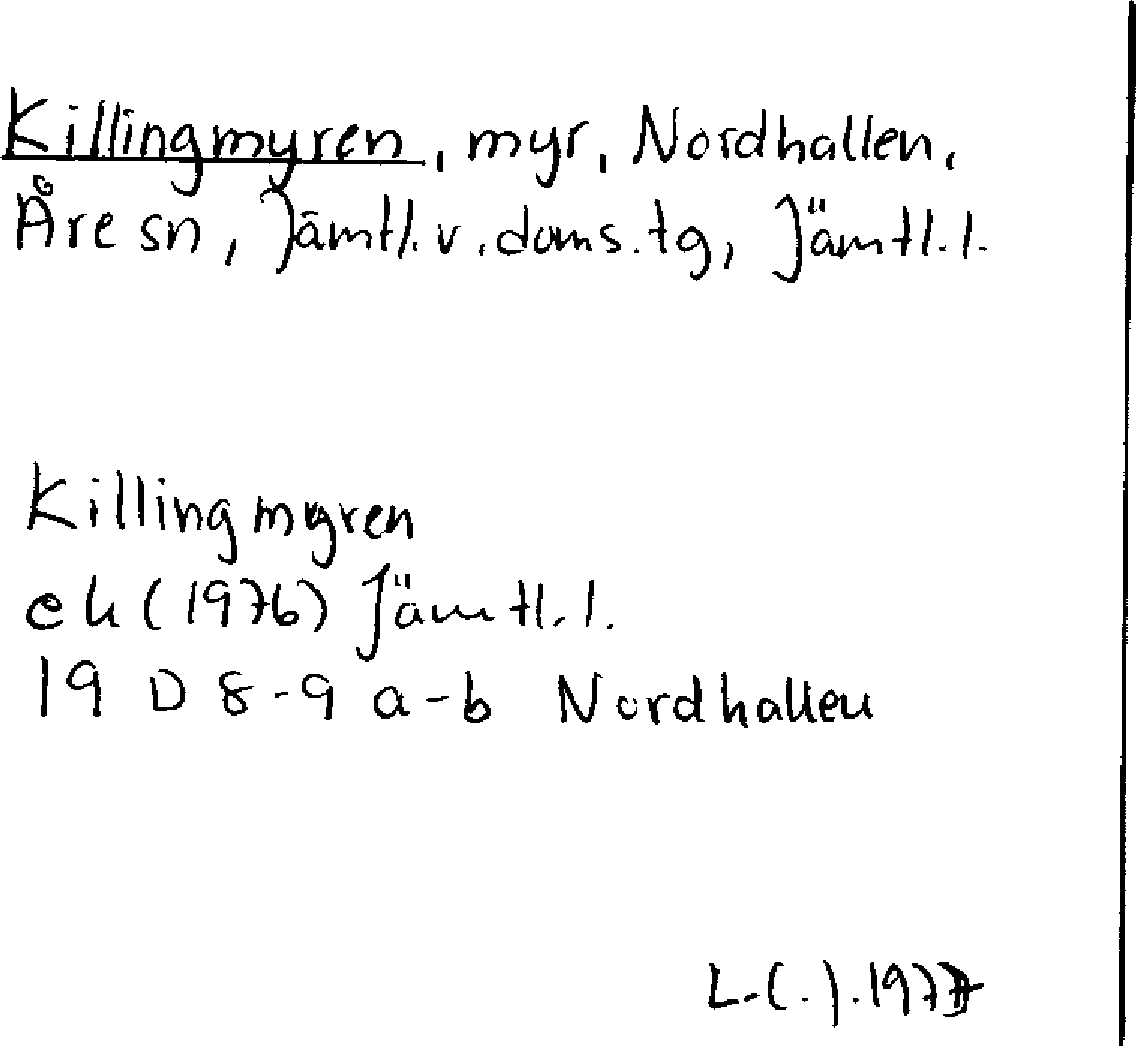 Killingmyren, myr, Nordhallen,
Åre sn, Jämtl. v. doms. tg, Jämtl. l.
Killingmyren
ek (1976) Jämtl. l.
19 D 8-9 a-b Nordhallen
L.(.).1977